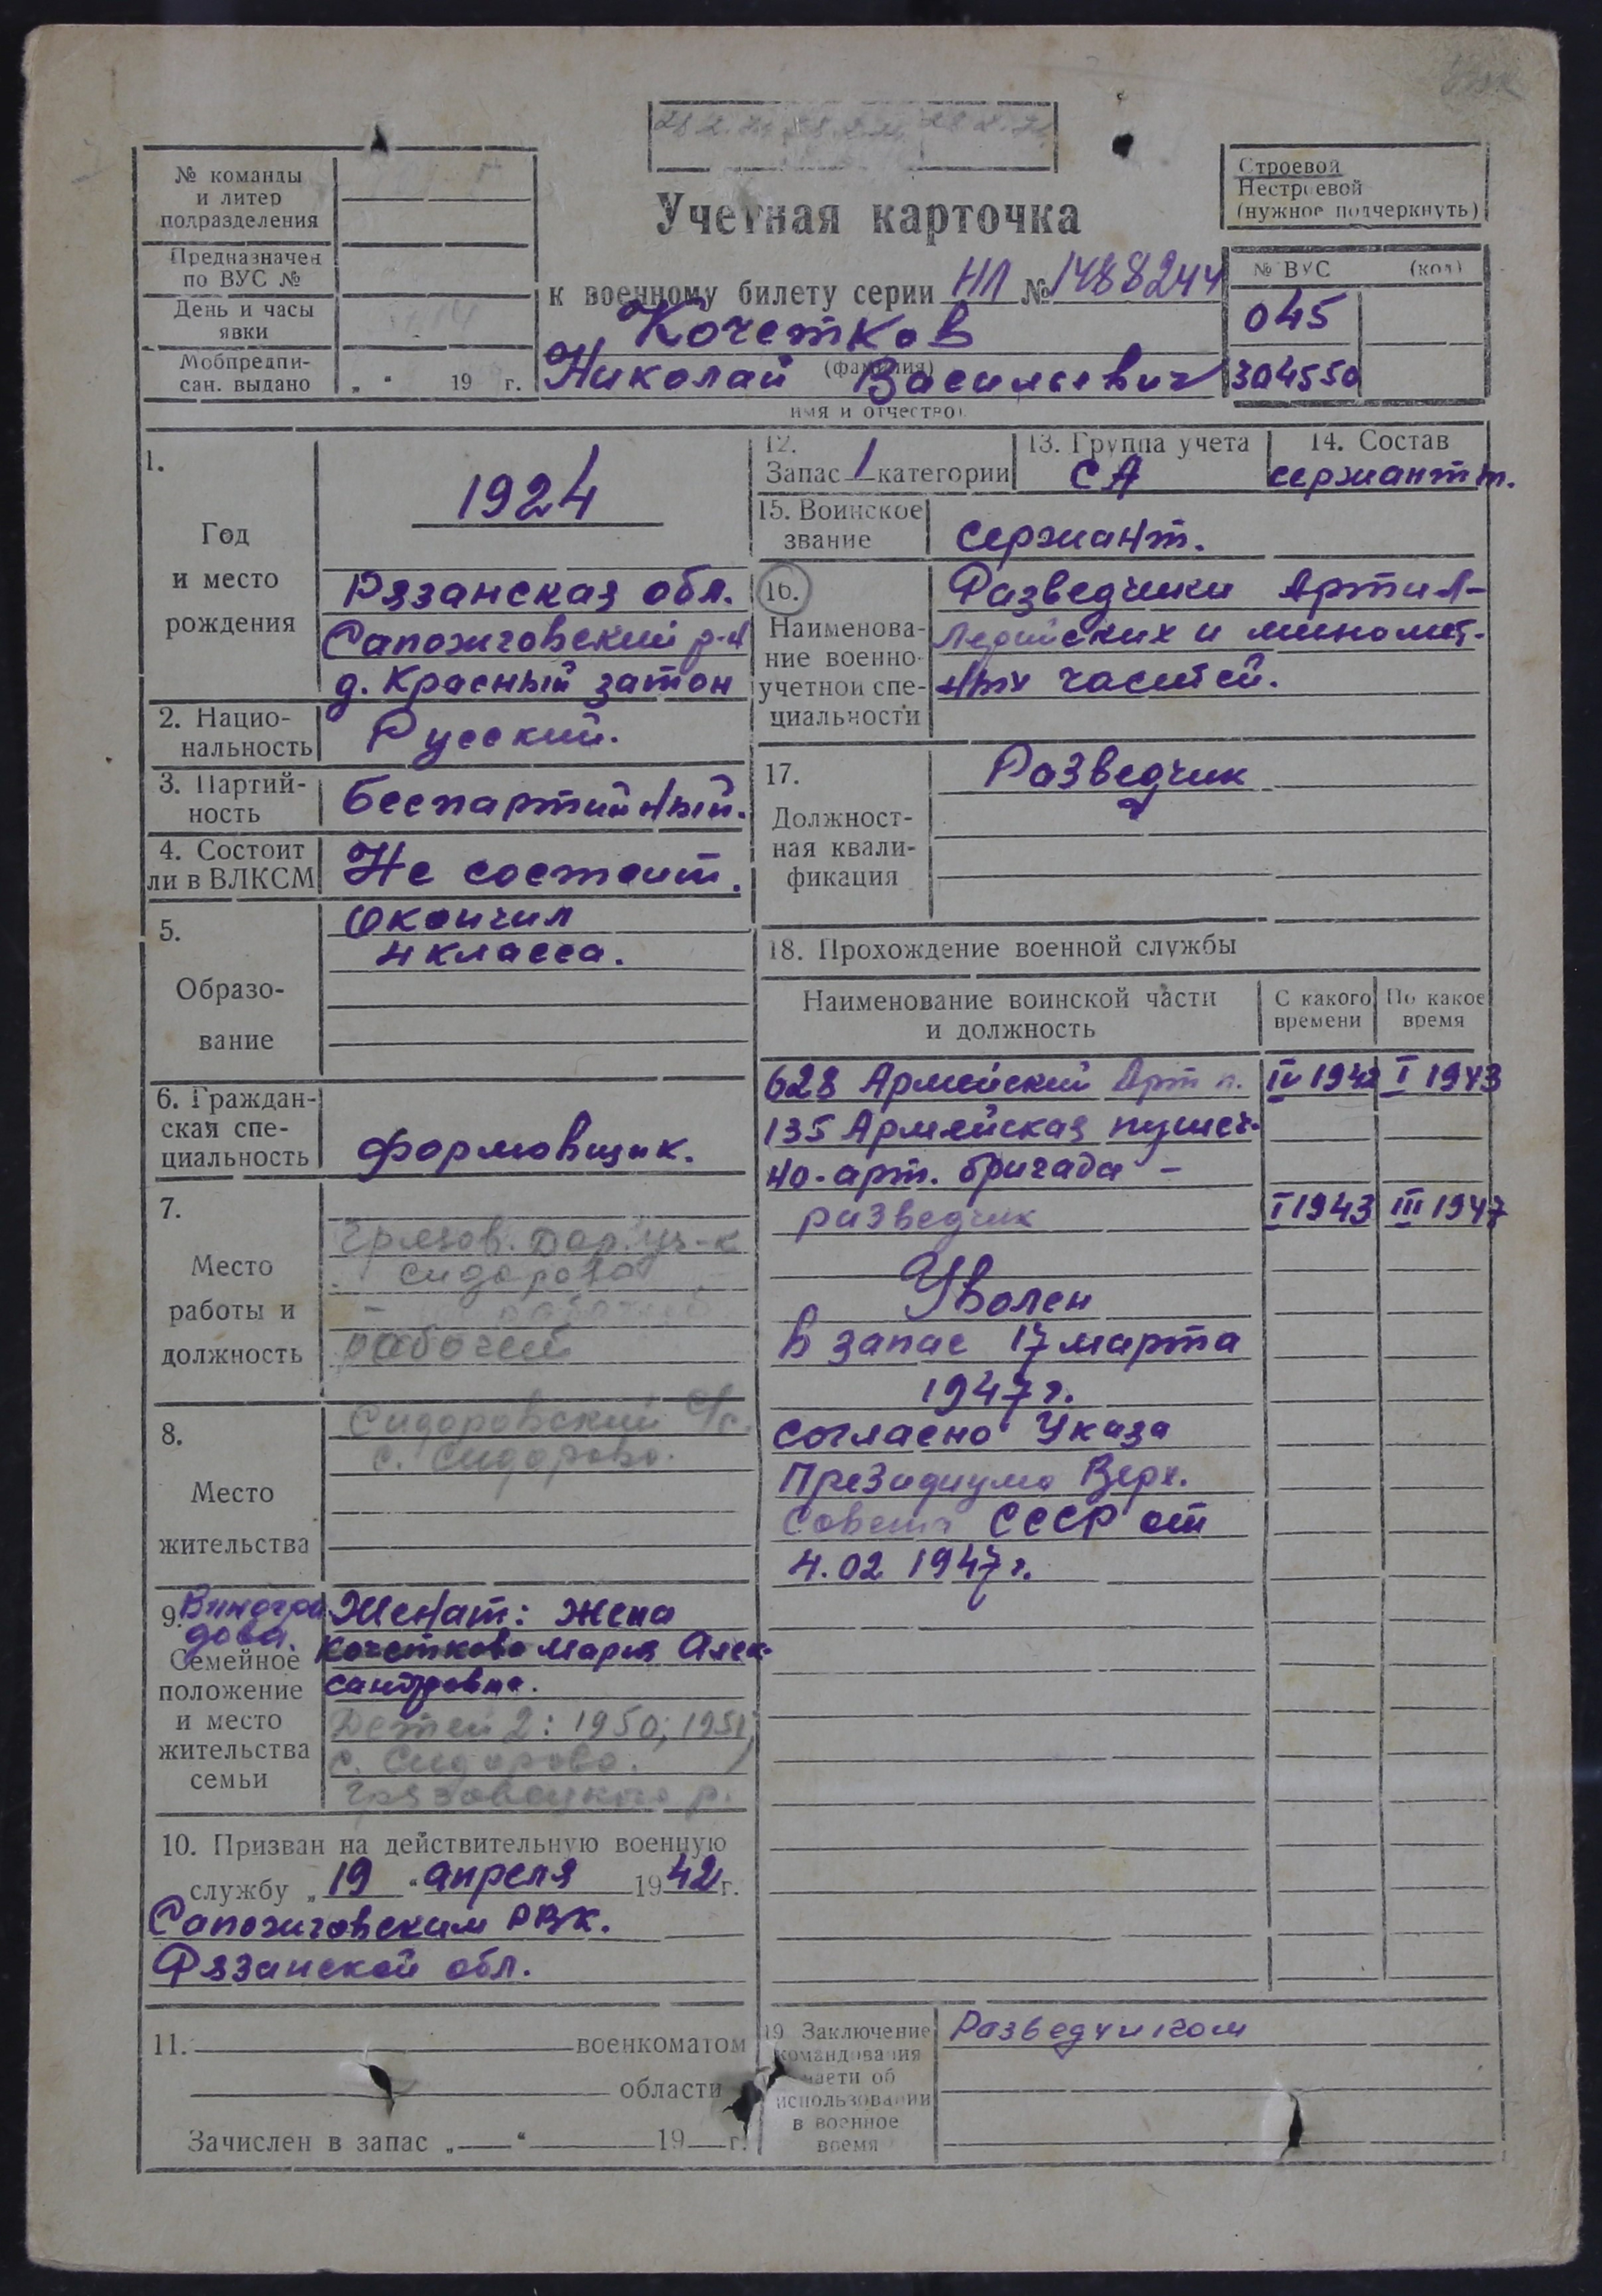 № команды
и литер
подразделения
Предназначен
по ВУС №
День и часы
явки
Мобпредпи-
сан. выдано „ “ 19 г.
Учетная карточка
к военному билету серии НЛ № 1488244
Кочетков
(фамилия)
Николай Васильевич
имя и отчество)
Строевой
Нестроевой
(нужное подчеркнуть)
№ ВУС (код)
045
304550
1.
Год
и место
рождения
1924
Рязанская обл.
Сапожговский р-н
д. Красный затон
2. Нацио-
нальность
Русский.
3. Партий-
ность
Беспартийный.
4. Состоит
ли в ВЛКСМ
Не состоит.
5.
Образо-
вание
Окончил
4 класса.
6. Граждан-
ская спе-
циальность
Формовщик.
7.
Место
работы и
должность
Грязов. Дор. уч-к
Сидорово
рабочий
8.
Место
жительства
Сидоровский с/с.
с. Сидорово.
9. Виногра
дова.
Семейное
положение
и место
жительства
семьи
Женат: Жена
Кочеткова Мария Алек-
сандровна.
Детей 2: 1950; 1951
с. Сидорово.
Грязовецкого р.
10. Призван на действительную военную
службу „ 19 “ апреля 1942 г.
Сапожговским РВК.
Рязанской обл.
11. военкоматом
области
Зачислен в запас „ “ 19 г.
12.
Запас 1 категории
13. Группа учета
СА
14. Состав
сержантт.
15. Воинское
звание
Сержант.
16.
Наименова-
ние военно-
учетной спе-
циальности
Разведчики Артил-
лерийских и миномет-
ных частей.
17.
Должност-
ная квали-
фикация
Разведчик
18. Прохождение военной службы
Наименование воинской части
и должность
С какого
времени
По какое
время
628 Армейский Арт п. IV 1942 I 1943
135 Армейская пушеч-
но-арт. бригада –
разведчик I 1943 III 1947
Уволен
в запас 17 марта
1947 г.
согласно Указа
Президиума Верх.
Совета СССР от
4.02 1947 г.
19 Заключение
командования
части об
использовании
в военное
время
Разведчиком